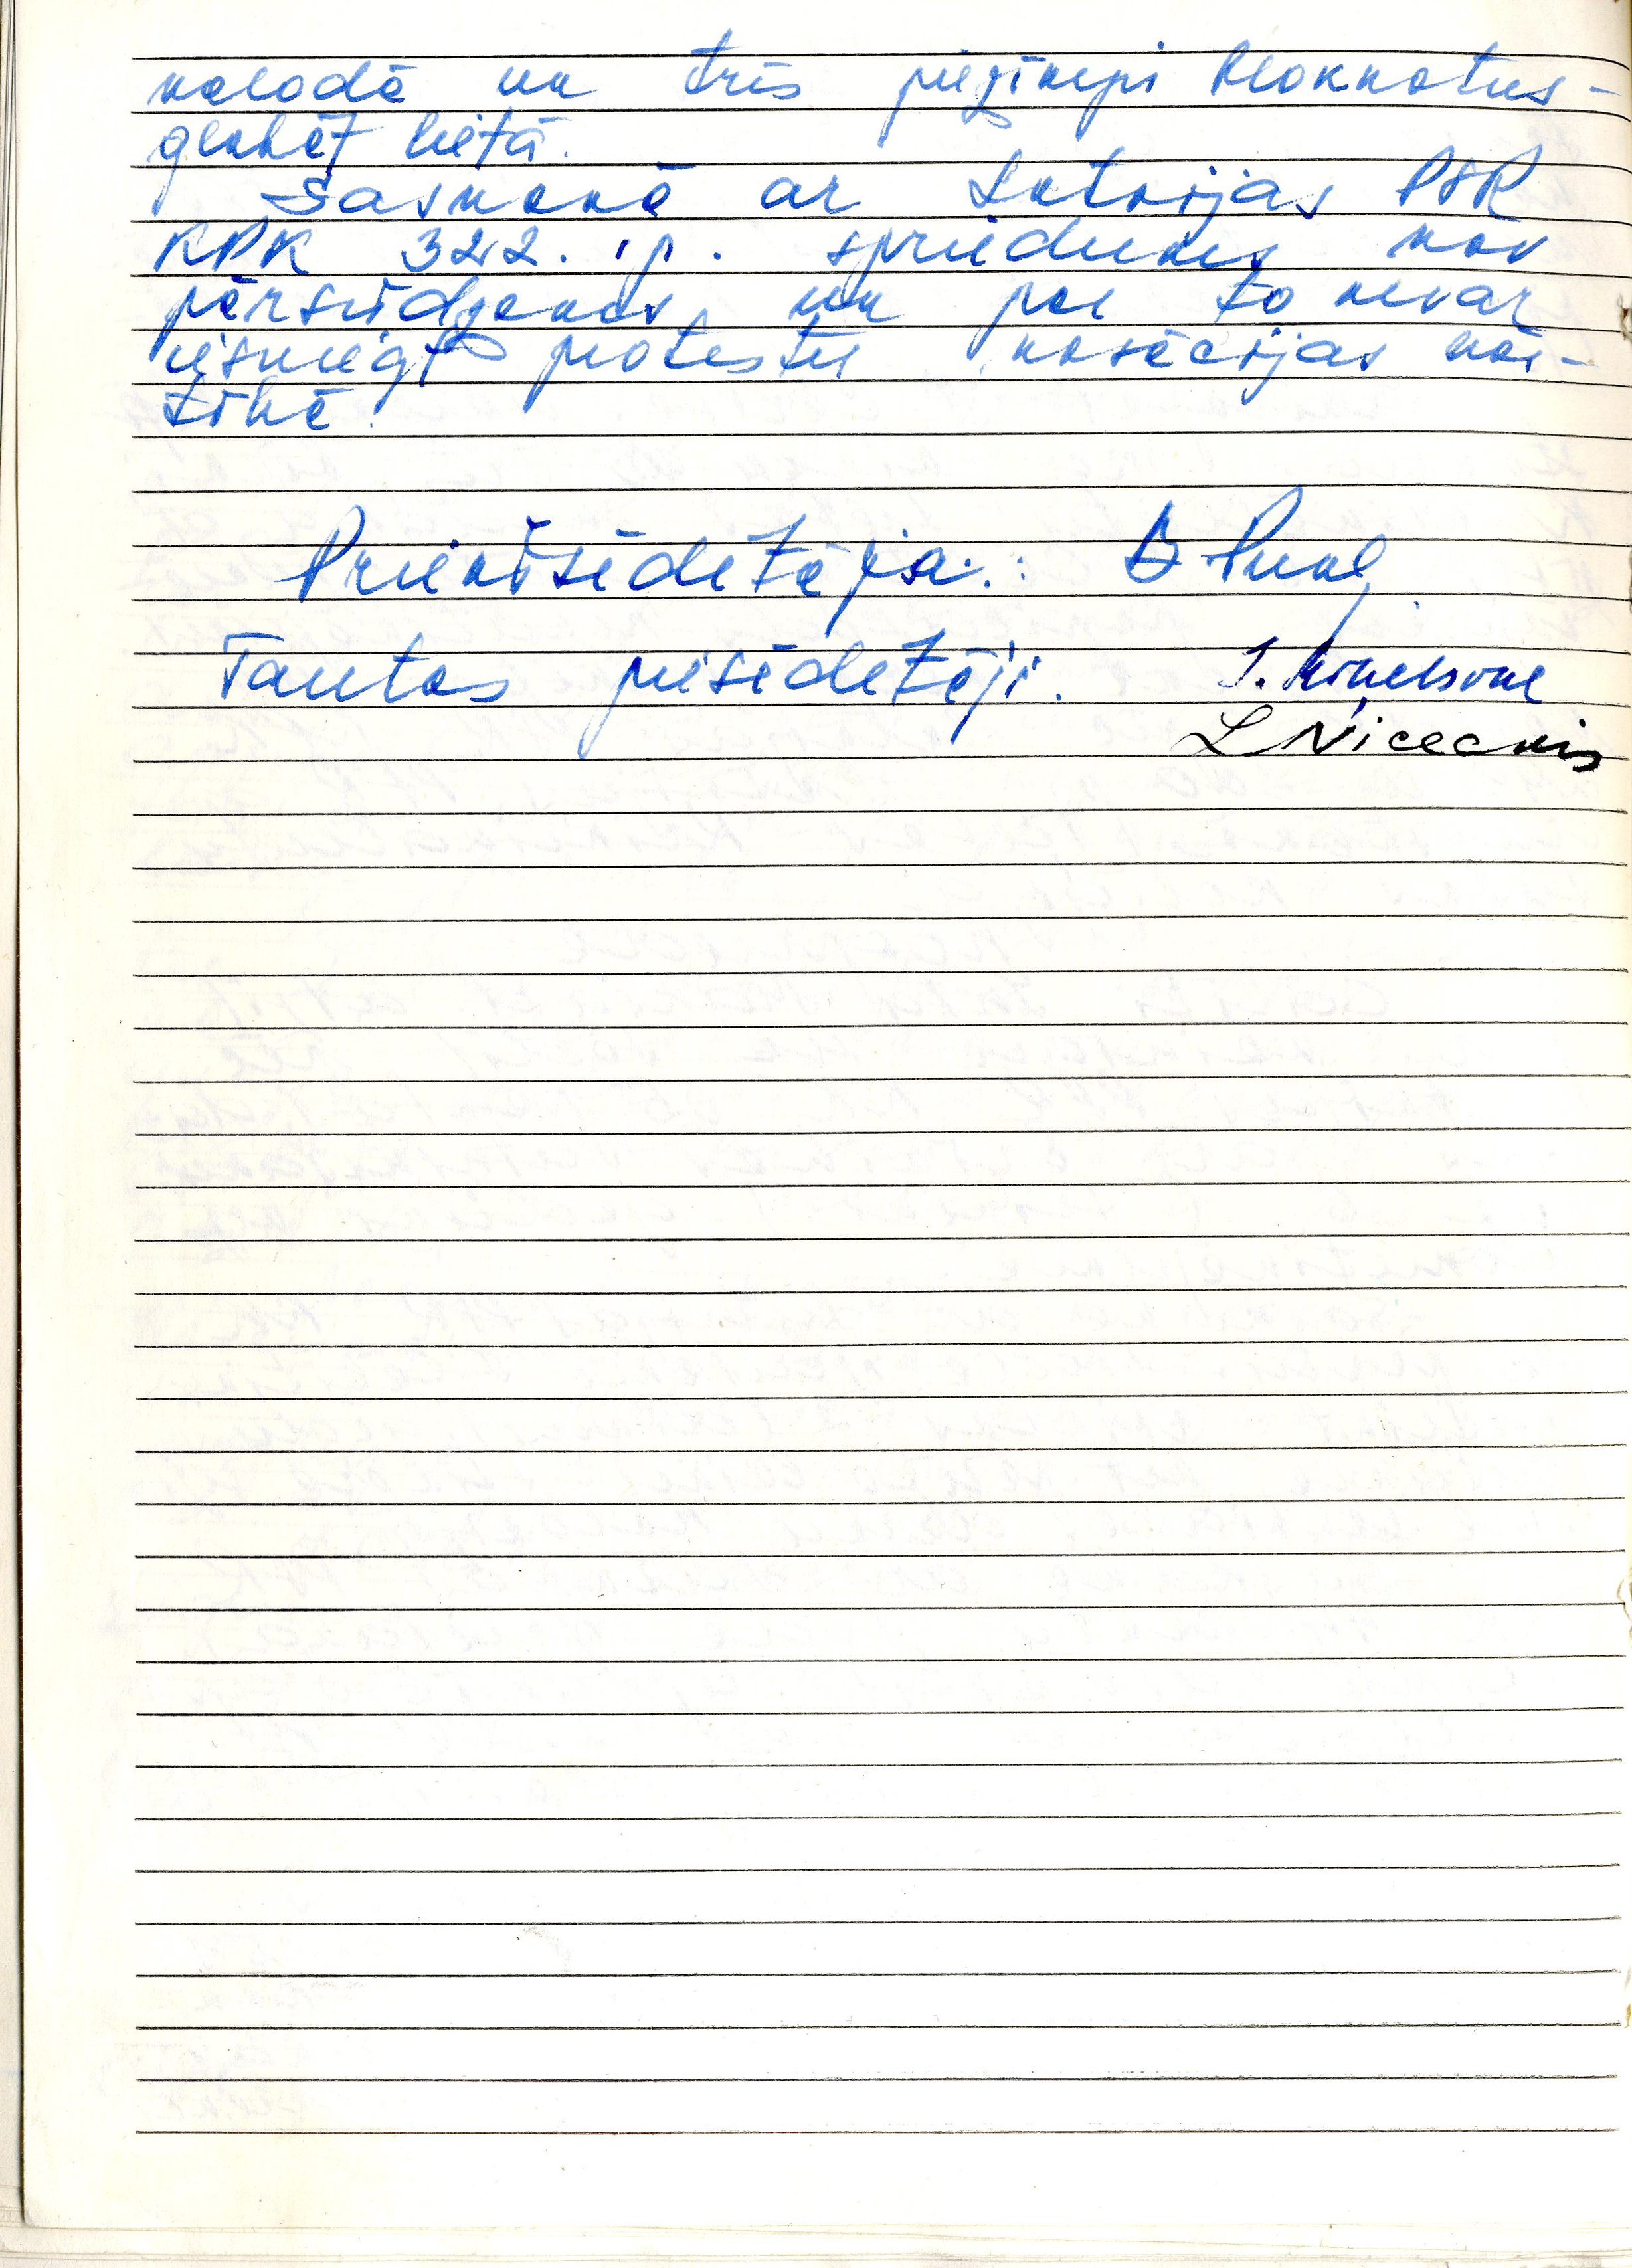 valodā un trīs piezīmju bloknotus -
glabāt lietā.
Saskaņā ar Latvijas PSR
KPK 322. p. spriedums nav
pārsūdzams un par to nevar
iesniegt protestu kasācijas kār-
tībā.
Priekšsēdētāja:
Tautas piesēdētāji.